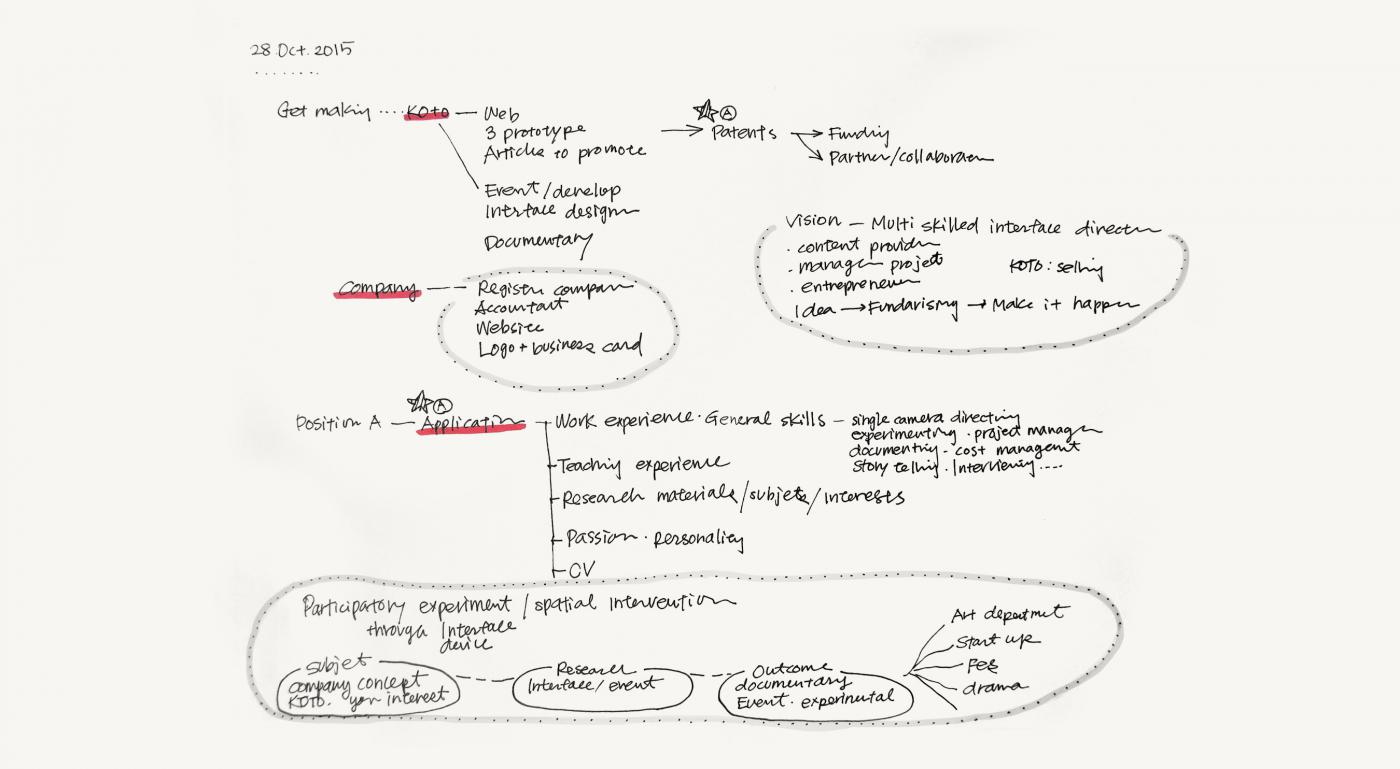 28.Oct.2015
Get making .... KOTO — Web
3 prototype
Articles to promote
Ⓐ
Patents
Funding
Partner/collaboraen
Event/develop
Interface design
Documentary
Vision — Multi skilled interface director
. content provider
. manager project
KOTO: selling
. entrepreneur
Idea → Fundarising → Make it happen
Company — Register company
Accountant
Website
Logo + business card
Ⓐ
Position A — Application
Work experience · General skills — single camera directing
experimenting · project manager
documenting · cost managemt
story telling · Interviewing ....
Teaching experience
Research materials/subjets/interests
Passion · Personality
CV
Participatory experiment / spatial intervention
through Interface
device
Subjet
company concept
KOTO. your interest
Research
Interface/event
Outcome
documentary
Event · experimental
Art departmet
Start up
drama